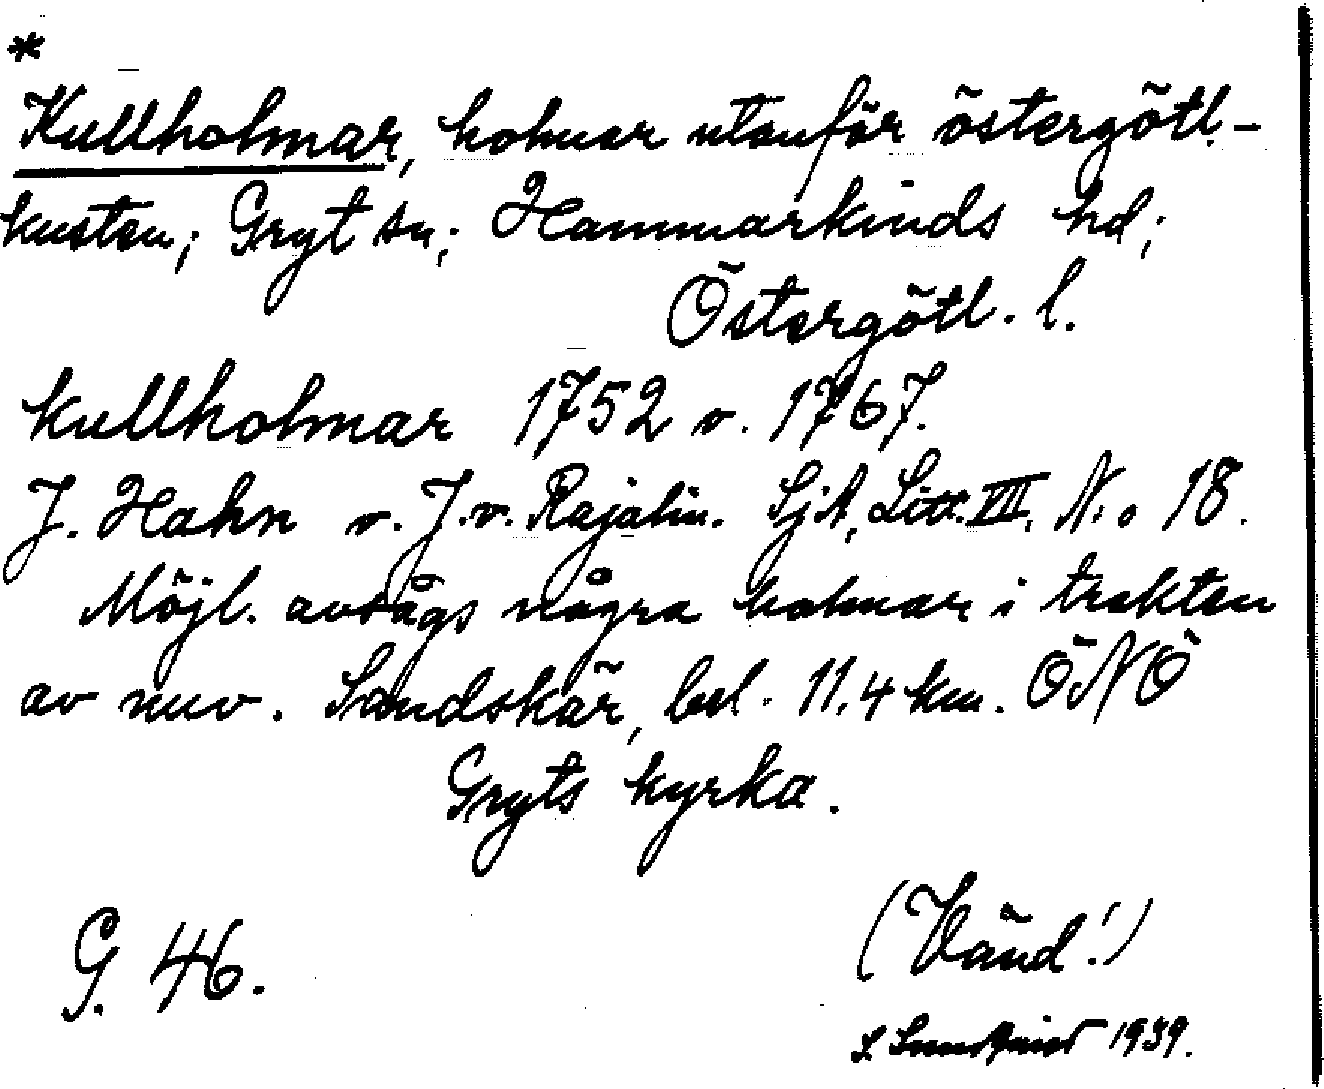 *
Kullholmar, holmar utanför östergötl.-
kusten; Gryt sn; Hammarkinds hd;
Östergötl. l.
Kullholmar 1752 o. 1767.
J. Hahn o. J. v. Rajalin. SjA, Litt. VIII, N:o 18.
Möjl. avsågs några holmar i trakten
av nuv. Sandskär, bel. 11,4 km. ÖNÖ
Gryts kyrka.
(Vänd!)
G. 46.
1939.